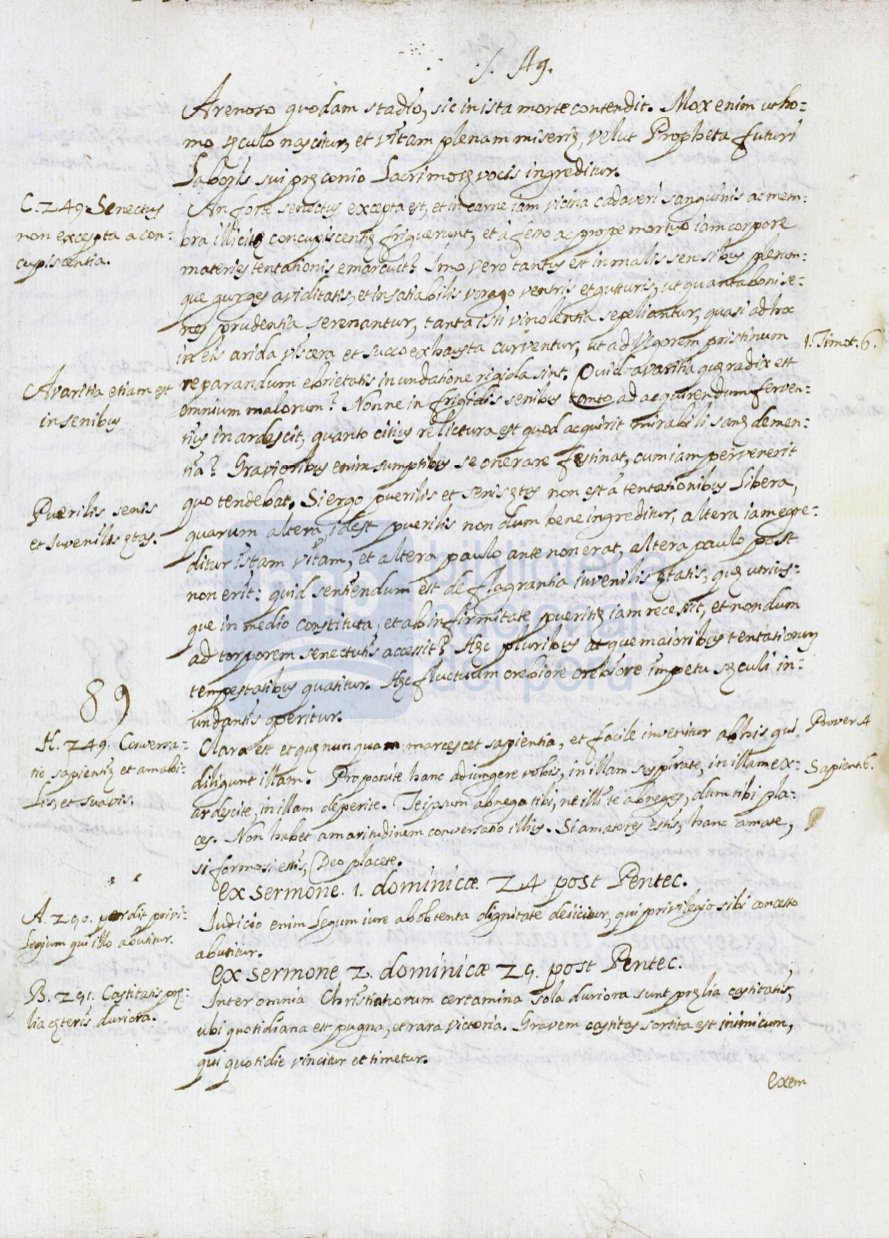 S. Aq.
Arenoso quodam stadio, sic in ista morte contendit. Mox enim ut ho-
mo sęculo nascitur, et vitam plenam miserię, velut Propheta futuri
Laboris sui pręconio Lacrimosę vocis ingreditur.
C. 249. Senectus
non excepta a con-
cupiscentia.
An forte senectus excepta est, et in carne iam vicina cadaveri sanguinis ac mem-
bra illicitę concupiscentię friguerunt, et a fesso ac prope mortuo iam corpore
materies tentationis emarcuit? Imo vero tantus est in malis sensibus plerun-
que gurges aviditatis, et insatiabilis vorago ventris et gutturis, ut quanta boni se-
nes prudentia serenantur, tanta isti vinolentia sepeliantur, quasi ad hoc
in eis arida viscera et succo exhausta curventur, ut ad vigorem pristinum
1. Timot. 6.
Avaritia etiam est
in senibus
reparandum ebrietatis inundatione rigida sint. Quid avaritia quę radix est
omnium malorum? Nonne in frigidis senibus tanto ad acquirendum ferven-
tius inardescit, quanto citius relictura est quod acquirit mirabili sanę demen-
tia? Gravioribus enim sumptibus se onerare festinat, cum iam pervenerit
quo tendebat. Si ergo puerilis et senis ętas non est â tentationibus Libera,
Puerilis senis
et Iuvenilis ętas.
quarum altera, idest puerilis non dum bene ingreditur, altera iam egre-
ditur istam vitam, et altera paulo ante non erat, altera paulo post
non erit: quid sentiendum est de flagrantia iuvenilis ętatis, quę utrius-
que in medio constituta, et ab infirmitate pueritię iam recessit, et nondum
ad torporem senectutis accessit? Hęc pluribus atque maioribus tentationum
tempestatibus quatitur. Hęc fluctuum crebiore crebiore impetu sęculi in-
undantis operitur.
89
H. 249. Conversa-
tio sapientię et amabi-
Lis, et suavis.
Clara est et quę nunquam marcescet sapientia, et facile invenitur ab his qui
Prover. 4
diligunt illam. Proponite hanc adiungere vobis, in illam suspirate, in illam ex-
Sapient. 6.
ardescite, in illam deperite. Teipsum abnega tibi, ne illi te abneges, dum tibi pla-
ces. Non habet amaritudinem conversatio illius. Si amatores estis, hanc amate,
si formosi estis, Deo placete.
ex sermone. 1. dominicæ 24 post Pentec.
A. 290. perdit privi-
Legium qui illo abutitur.
Iudicio enim Legum iure ab obtenta dignitate deiicitur, qui privilegio sibi concesso
abutitur.
ex sermone 2. dominicæ 25. post Pentec.
B. 291. Castitatis prę-
lia cęteris duriora.
Inter omnia Christianorum certamina sola duriora sunt pręlia castitatis,
ubi quotidiana est pugna, et rara victoria. Gravem castitas sortita est inimicum,
qui quotidie vincitur et timetur.
exem
bnp biblioteca
nacional
del perú